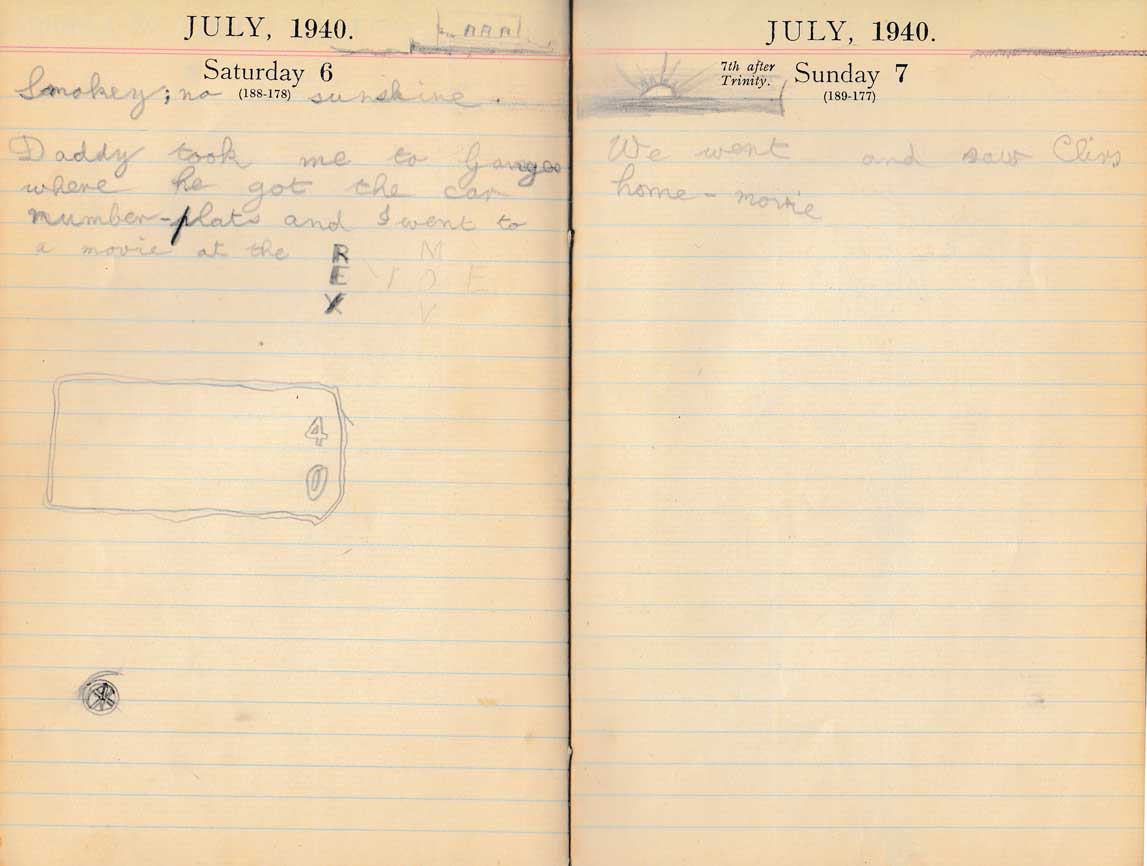 JULY, 1940.
Saturday 6
(188-178)
Smokey; no sunshine.
Daddy took me to Ganges
where he got the car
number-plats and I went to
a movie at the R M
E I O E
X V
4
0
JULY, 1940.
7th after
Trinity.
Sunday 7
(189-177)
We went and saw Clivs
home-movie